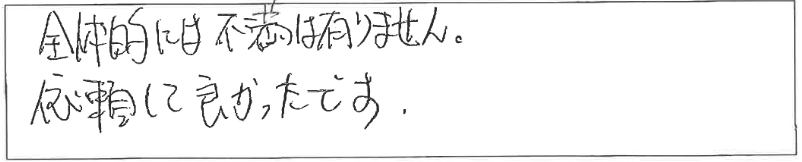 全体的には不満は有りません。
依頼して良かったです.